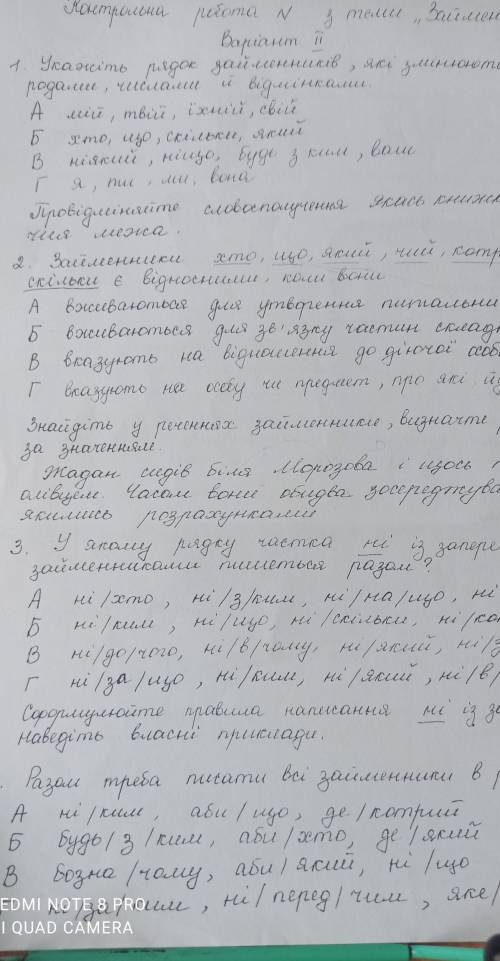 Контрольна робота N з теми „Займен
Варіант II
1. Укажіть рядок займенників, які змінюють
родами, числами й відмінками.
А мій, твій, їхній, свій
Б хто, що, скільки, який
В ніякий, ніщо, будь з ким, ваш
Г я, ти, ми, вона
Провідміняйте словосполучення якась книжк
чия межа.
2. Займенники хто, що, який, чий, котр
скільки є відносними, коли вони
А вживаються для утворення питальни
Б вживаються для зв'язку частин склад
В вказують на відношення до діючої особ
Г вказують на особу чи предмет, про які йд
Знайдіть у реченнях займенники, визначте
за значенням.
Жадан сидів біля Морозова і щось
олівцем. Часом вони обидва зосереджува
якимись розрахунками
3. У якому рядку частка ні із запере
займенниками пишеться разом?
А ні/хто, ні/з/ким, ні/на/що, ні
Б ні/ким, ні/що, ні/скільки, ні/ко
В ні/до/чого, ні/в/чому, ні/який, ні/з
Г ні/за/що, ні/ким, ні/який, ні/в/
Сформулюйте правила написання ні із за
Наведіть власні приклади.
. Разом треба писати всі займенники в р
А ні/ким, аби/що, де/котрий
Б будь/з/ким, аби/хто, де/який
В бозна/чому, аби/який, ні/що
ні/за/ким, ні/перед/чим, яке/
EDMI NOTE 8 PRO
I QUAD CAMERA